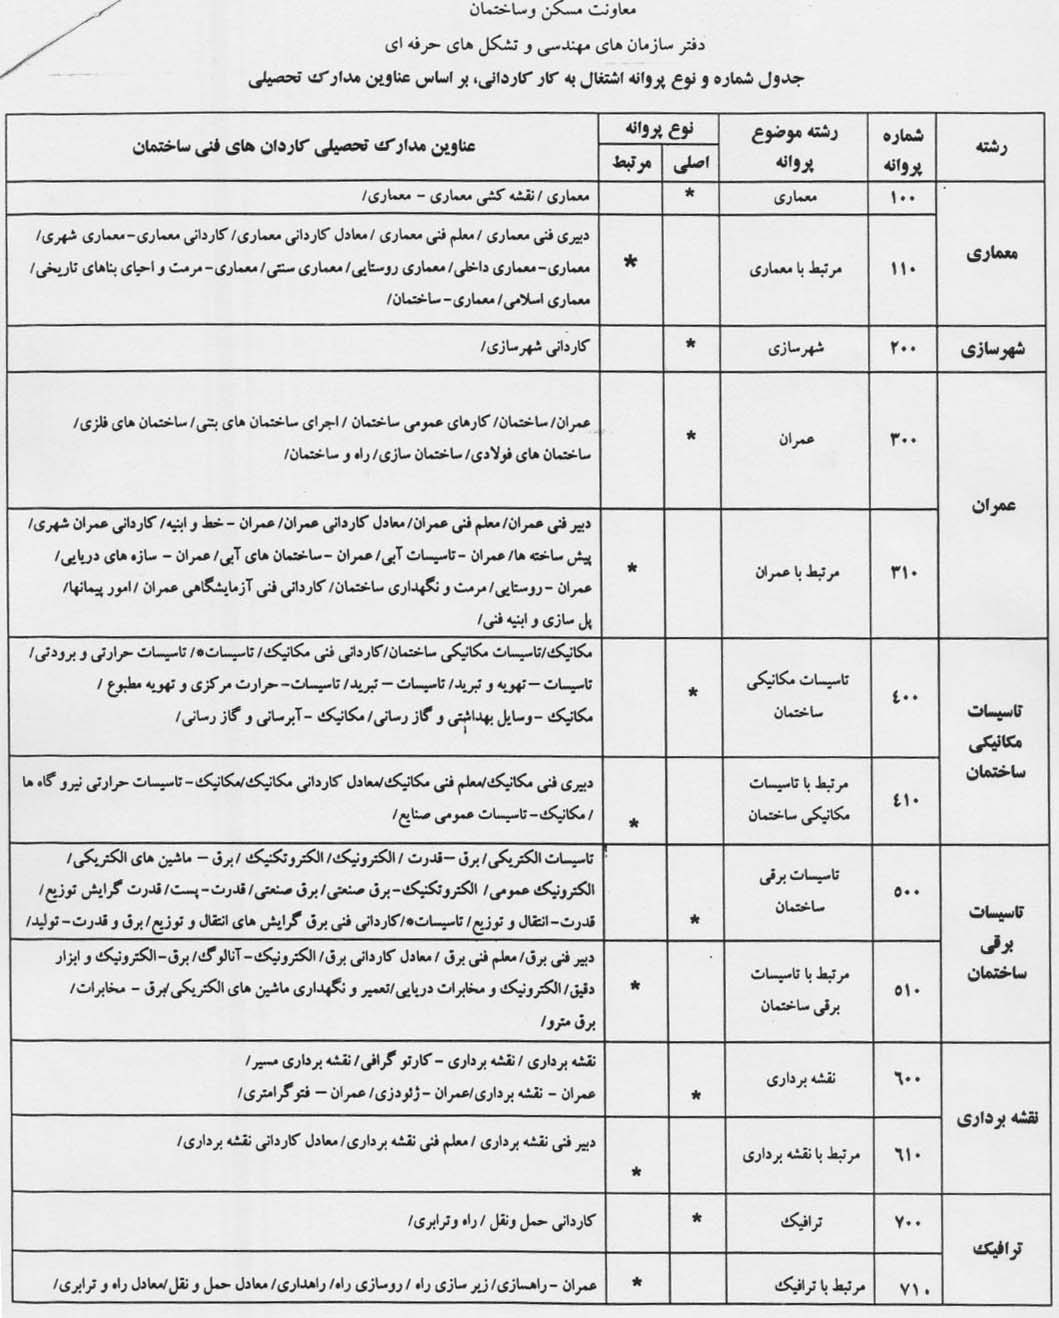 معاونت مسکن وساختمان
دفتر سازمان های مهندسی و تشکل های حرفه ای
جدول شماره و نوع پروانه اشتغال به کار کاردانی، بر اساس عناوین مدارک تحصیلی
رشته
شماره پروانه
رشته موضوع پروانه
نوع پروانه
اصلی
مرتبط
عناوین مدارک تحصیلی کاردان های فنی ساختمان
معماری
۱۰۰
معماری
*
معماری / نقشه کشی معماری - معماری/
۱۱۰
مرتبط با معماری
*
دبیری فنی معماری / معلم فنی معماری / معادل کاردانی معماری/ کاردانی معماری-معماری شهری/
معماری-معماری داخلی/ معماری روستایی/ معماری سنتی/ معماری- مرمت و احیای بناهای تاریخی/
معماری اسلامی/ معماری- ساختمان/
شهرسازی
۲۰۰
شهرسازی
*
کاردانی شهرسازی/
عمران
۳۰۰
عمران
*
عمران/ ساختمان/ کارهای عمومی ساختمان / اجرای ساختمان های بتنی/ ساختمان های فلزی/
ساختمان های فولادی/ ساختمان سازی/ راه و ساختمان/
۳۱۰
مرتبط با عمران
*
دبیر فنی عمران/ معلم فنی عمران/ معادل کاردانی عمران/ عمران - خط و ابنیه/ کاردانی عمران شهری/
پیش ساخته ها/ عمران - تاسیسات آبی/ عمران -ساختمان های آبی/ عمران - سازه های دریایی/
عمران - روستایی/ مرمت و نگهداری ساختمان/ کاردانی فنی آزمایشگاهی عمران / امور پیمانها/
پل سازی و ابنیه فنی/
تاسیسات
مکانیکی
ساختمان
٤۰۰
تاسیسات مکانیکی
ساختمان
*
مکانیک/تاسیسات مکانیکی ساختمان/کاردانی فنی مکانیک/ تاسیسات*/ تاسیسات حرارتی و برودتی/
تاسیسات – تهویه و تبرید/ تاسیسات – تبرید/ تاسیسات- حرارت مرکزی و تهویه مطبوع /
مکانیک -وسایل بهداشتی و گاز رسانی/ مکانیک - آبرسانی و گاز رسانی/
٤۱۰
مرتبط با تاسیسات
مکانیکی ساختمان
*
دبیری فنی مکانیک/معلم فنی مکانیک/معادل کاردانی مکانیک/مکانیک- تاسیسات حرارتی نیرو گاه ها
/ مکانیک- تاسیسات عمومی صنایع/
تاسیسات
برقی
ساختمان
٥۰۰
تاسیسات برقی
ساختمان
*
تاسیسات الکتریکی/ برق –قدرت / الکترونیک/ الکتروتکنیک / برق – ماشین های الکتریکی/
الکترونیک عمومی/ الکتروتکنیک- برق صنعتی/ برق صنعتی/ قدرت- پست/ قدرت گرایش توزیع/
قدرت- انتقال و توزیع/ تاسیسات*/کاردانی فنی برق گرایش های انتقال و توزیع/ برق و قدرت- تولید/
٥۱۰
مرتبط با تاسیسات
برقی ساختمان
*
دبیر فنی برق/ معلم فنی برق / معادل کاردانی برق/ الکترونیک- آنالوگ/ برق-الکترونیک و ابزار
دقیق/ الکترونیک و مخابرات دریایی/تعمیر و نگهداری ماشین های الکتریکی/برق - مخابرات/
برق مترو/
نقشه برداری
٦۰۰
نقشه برداری
*
نقشه برداری / نقشه برداری - کارتو گرافی/ نقشه برداری مسیر/
عمران - نقشه برداری/عمران - ژئودزی/ عمران – فتو گرامتری/
٦۱۰
مرتبط با نقشه برداری
*
دبیر فنی نقشه برداری / معلم فنی نقشه برداری/ معادل کاردانی نقشه برداری/
ترافیک
۷۰۰
ترافیک
*
کاردانی حمل ونقل / راه وترابری/
۷۱۰
مرتبط با ترافیک
*
عمران - راهسازی/ زیر سازی راه / روسازی راه/ راهداری/ معادل حمل و نقل/معادل راه و ترابری/